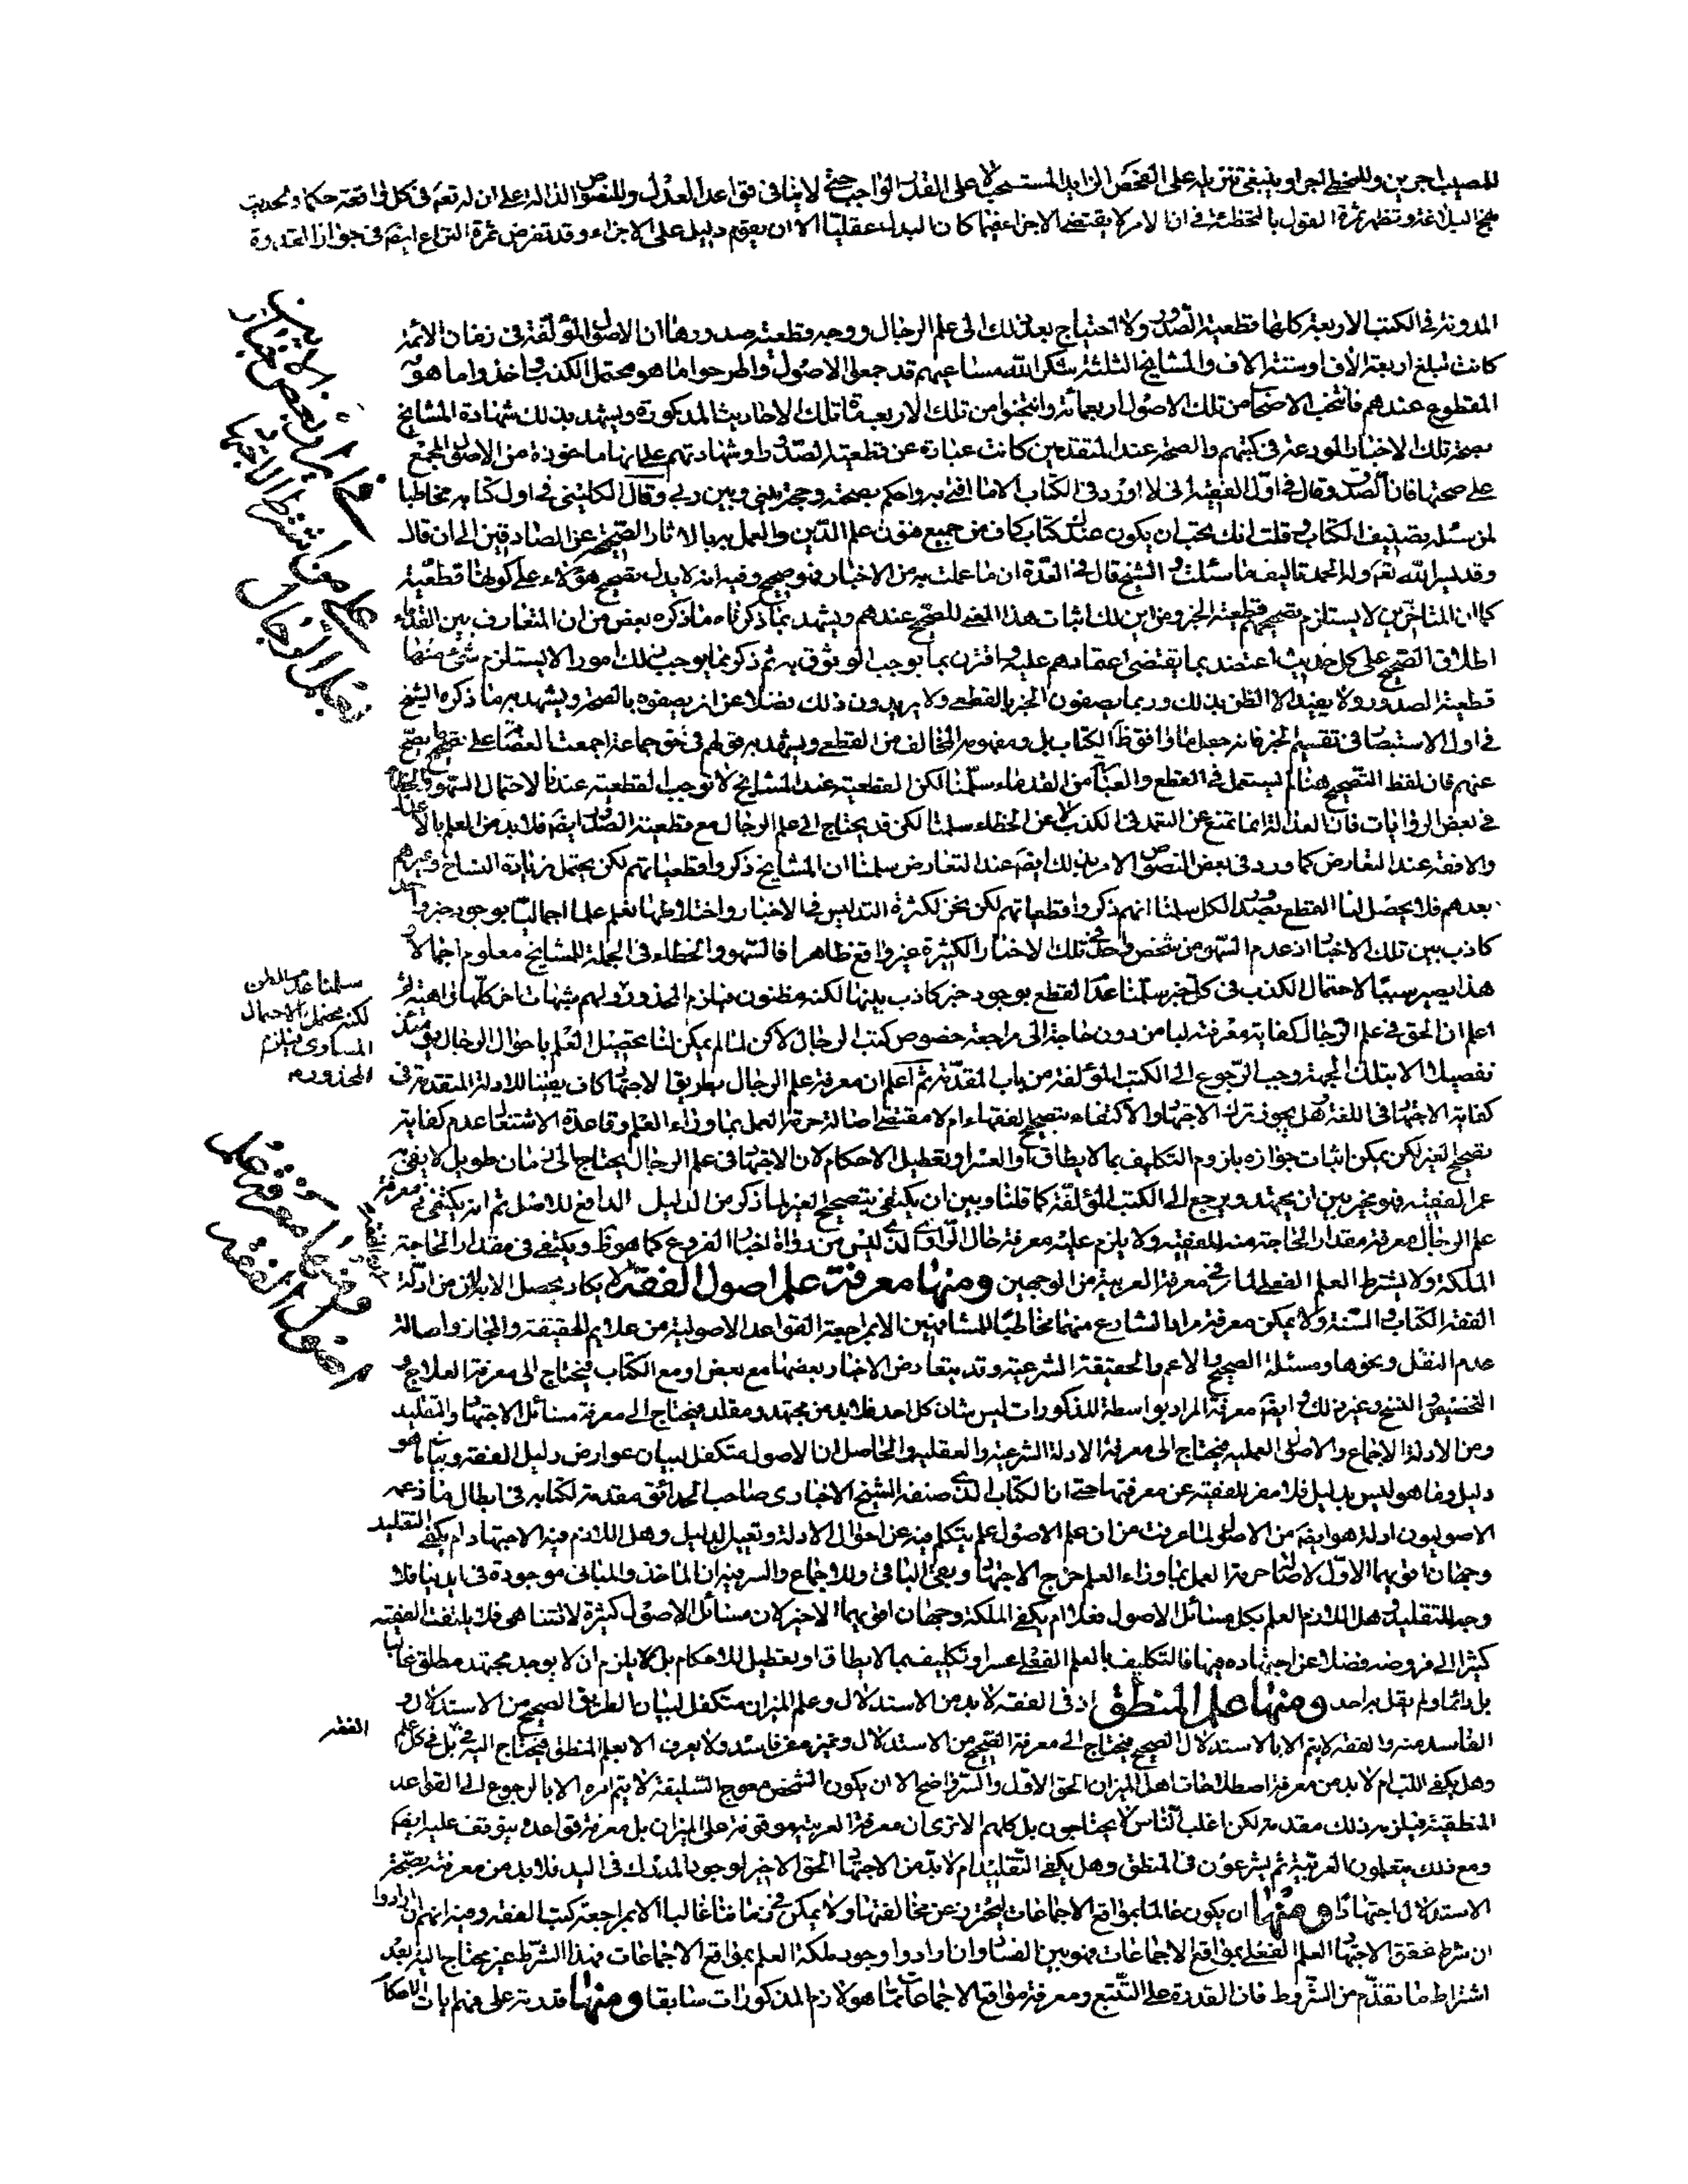 للمصيب اجرين وللمخطى اجرا وينبغى تنزيله على الفحص الزايد المستحب لا على القدر الواجب حتى لا ينافى قواعد العدل وللنصوص الدالة على ان لله تعه فى كل واقعة حكما ولحديث
نهج البلاغة وتظهر ثمرة القول بالتخطئة فى ان الامر لا يقتضى الاجزاء فيما كان البدل عقليا الا ان يقوم دليل على الاجزاء وقد تفرض ثمرة النزاع ايضه فى جواز
المدونة فى الكتب الاربعة كلها قطعية الصدور ولا احتياج بعد ذلك الى علم الرجال ووجه قطعية صدورها ان الاصول المؤلفة فى زمان الائمة
كانت تبلغ اربعة الاف او ستة الاف والمشايخ الثلثة شكر الله مساعيهم قد جمعوا الاصول واطرحوا ما هو محتمل الكذب واخذوا ما هو
المقطوع عندهم فانتخب الاصحاب من تلك الاصول اربعمائة وانتخبوا من تلك الاربعمائة تلك الاحاديث المذكورة ويشهد بذلك شهادة المشايخ
بصحة تلك الاخبار المودعة فى كتبهم والصحة عند المتقدمين كانت عبارة عن قطعية الصدور او شهادتهم على انها ماخوذة من الاصول المجمع
على صحتها فان الصدوق قال فى اول الفقيه انى لا اورد فى الكتاب الا ما افتى به واحكم بصحته وحجة بينى وبين ربى وقال الكلينى فى اول كتابه مخاطبا
لمن سئله تصنيف الكتاب قلت انك تحب ان يكون عندك كتاب كاف من جميع فنون علم الدين والعمل به بالاثار الصحيحة عن الصادقين الى ان قال
وقد يسر الله تعه وله الحمد تاليف ما سئلت والشيخ قال فى العدة ان ما عملت به من الاخبار فهو صحيح وفيه انه لا يدل تصحيح هؤلاء على كونها قطعية
كما ان المتاخرين لا يستلزم تصحيحهم قطعية الخبر ومن اين لك اثبات هذا المعنى للصحيح عندهم ويشهد بما ذكرناه ما ذكره بعض من ان المتعارف بين القدماء
اطلاق الصحيح على كل حديث اعتضد بما يقتضى اعتمادهم عليه او اقترن بما يوجب الوثوق به ثم ذكر مما يوجب ذلك امورا لا يستلزم شئ منها
قطعية الصدور ولا يفيد الا الظن بذلك وربما يصفون الخبر بالقطعى ولا يريدون ذلك فضلا عن ان يصفوه بالصحة ويشهد به ما ذكره الشيخ
فى اول الاستبصار فى تقسيم الخبر فانه جعل ما وافق ظ الكتاب بل ومفهومه المخالف من القطعى ويشهد به قولهم فى حق جماعة اجمعت العصابة على تصحيح ما يصح
عنهم فان لفظ التصحيح هنا لم يستعمل فى القطع والعصابة من القدماء سلمنا لكن القطعية عند المشايخ لا توجب القطعية عندنا لاحتمال السهو والخطاء
فى بعض الروايات فان العدالة انما تمنع عن التعمد فى الكذب لا عن الخطاء سلمنا لكن قد يحتاج الى علم الرجال مع قطعية الصدور ايضه فلا بد من العلم بالاعدل
والافقه عند التعارض كما ورد فى بعض النصوص الامر بذلك ايضه عند التعارض سلمنا ان المشايخ ذكروا قطعياتهم لكن يحتمل زيادة النساخ وغيرهم
بعدهم فلا يحصل لنا القطع بصدور الكل سلمنا انهم ذكروا قطعياتهم لكن نحن لكثرة التدليس فى الاخبار واختلاطها نعلم علما اجماليا بوجود خبر واحد
كاذب بين تلك الاخبار اذ عدم السهو من شخص واحد فى تلك الاخبار الكثيرة غير واقع ظاهرا فالسهو والخطاء فى الجملة للمشايخ معلوم اجمالا و
هذا يصير سببا لاحتمال الكذب فى كل خبر سلمنا عدم القطع بوجود خبر كاذب بينها لكنه مظنون فيلزم المحذور ولهم شبهات اخر كلها واهية ثم
اعلم ان الحق فى علم الرجال كفاية معرفته لبا من دون حاجة الى مراجعة خصوص كتب الرجال لكن لما لم يمكن لنا تحصيل العلم باحوال الرجال يومئذ
تفصيلا الا بتلك الجهة وجب الرجوع الى الكتب المؤلفة من باب المقدمة ثم اعلم ان معرفة علم الرجال بطريق الاجتهاد كاف يقينا للادلة المتقدمة فى
كفاية الاجتهاد فى اللغة وهل يجوز ترك الاجتهاد والاكتفاء بتصحيح الفقهاء ام لا مقتضى اصالة حرمة العمل بما وراء العلم وقاعدة الاشتغال عدم كفاية
تصحيح الغير لكن يمكن اثبات جوازه بلزوم التكليف بما لا يطاق او العسر او تعطيل الاحكام لان الاجتهاد فى علم الرجال يحتاج الى زمان طويل لا يفى به
عمر الفقيه فهو مخير بين ان يجتهد ويرجع الى الكتب المؤلفة كما قلنا وبين ان يكتفى بتصحيح الغير لما ذكر من الدليل الدافع للاصل ثم انه يكتفى فى معرفة
علم الرجال معرفة مقدار الحاجة منه للفقيه ولا يلزم عليه معرفة حال الراوى الذى ليس من رواة اخبار الفروع كما هو ظ ويكتفى فى مقدار الحاجة
الملكة ولا يشترط العلم الفعلى لما مر فى معرفة العربية من الوجهين ومنها معرفة علم اصول الفقه اذ لا يكاد يحصل الا به لان من ادلة
الفقه الكتاب والسنة ولا يمكن معرفة مراد الشارع منهما مخاطبا للمشافهين الا بمراجعة القواعد الاصولية من علائم الحقيقة والمجاز واصالة
عدم النقل ونحوها ومسئلة الصحيح والاعم والحقيقة الشرعية وقد يتعارض الاخبار بعضها مع بعض او مع الكتاب فيحتاج الى معرفة العلاج و
التخصيص والنسخ وغير ذلك وايضه معرفة المراد بواسطة المذكورات ليس شان كل احد فلا بد من مجتهد ومقلد فيحتاج الى معرفة مسائل الاجتهاد والتقليد
ومن الادلة الاجماع والاصول العملية فيحتاج الى معرفة الادلة الشرعية والعقلية والحاصل ان الاصول متكفل لبيان عوارض دليل الفقه وبيان ما هو
دليل وما هو ليس بدليل فلا مفر للفقيه عن معرفتها حتى ان الكتاب الذى صنفه الشيخ الاخبارى صاحب الحدائق مقدمة لكتابه فى ابطال ما زعمه
الاصوليون ادلة هو ايضه من الاصول لما عرفت من ان علم الاصول علم يتكلم فيه عن احوال الادلة وتعيين الدليل وهل اللازم فيه الاجتهاد ام يكفى التقليد
وجهان اقويهما الاول لاصالة حرمة العمل بما وراء العلم خرج الاجتهاد وبقى الباقى وللاجماع والسر فيه ان الماخذ والمبانى موجودة فى ايدينا فلا
وجه للتقليد وهل اللازم العلم بكل مسائل الاصول فعلا ام يكفى الملكة وجهان اقويهما الاخير لان مسائل الاصول كثيرة لا تتناهى فلا يلتفت الفقيه
كثيرا الى فروضه فضلا عن اجتهاده فيها فالتكليف بالعلم الفعلى عسر او تكليف بما لا يطاق او تعطيل للاحكام بل لا يلزم ان لا يوجد مجتهد مطلق غالبا
بل دائما ولم يقل به احد ومنها علم المنطق اذ فى الفقه لا بد من الاستدلال وعلم الميزان متكفل لبيان الطريق الصحيح من الاستدلال و
الفاسد منه والفقه لا يتم الا بالاستدلال الصحيح فيحتاج الى معرفة الصحيح من الاستدلال وتميزه عن فاسده ولا يعرف الا بعلم المنطق فيحتاج اليه فى الفقه بل فى كل علم
وهل يكفى اللب ام لا بد من معرفة اصطلاحات اهل الميزان الحق الاول والسر واضح الا ان يكون الشخص معوج السليقة لا يتم امره الا بالرجوع الى القواعد
المنطقية فيلزمه ذلك مقدمة لكن اغلب الناس لا يحتاجون بل كلهم الا ترى ان معرفة العربية موقوفة على الميزان بل معرفة قواعده يتوقف عليه ايضه
ومع ذلك يتعلمون العربية ثم يشرعون فى المنطق وهل يكفى التقليد ام لا بد من الاجتهاد الحق الاخير لوجود المدرك فى اليد فلا بد من معرفة صحة
الاستدلال اجتهادا ومنها ان يكون عالما بمواقع الاجماعات ليحترز عن مخالفتها ولا يمكن فى زماننا غالبا الا بمراجعة كتب الفقه وفيه انهم ان ارادوا
ان شرط تحقق الاجتهاد العلم الفعلى بمواقع الاجماعات فهو بين الفساد وان ارادوا وجود ملكة العلم بمواقع الاجماعات فهذا الشرط غير محتاج اليه بعد
اشتراط ما تقدم من الشروط فان القدرة على التتبع ومعرفة مواقع الاجماعات مما هو لازم المذكورات سابقا ومنها قدرته على فهم ايات الاحكام
على من اشترط الاجتهاد
بعلم الرجال
سلمنا عدم الظن
لكنه محتمل الاحتمال
المساوى فيلزم
المحذور
ومنها معرفة علم
اصول الفقه
الفقه